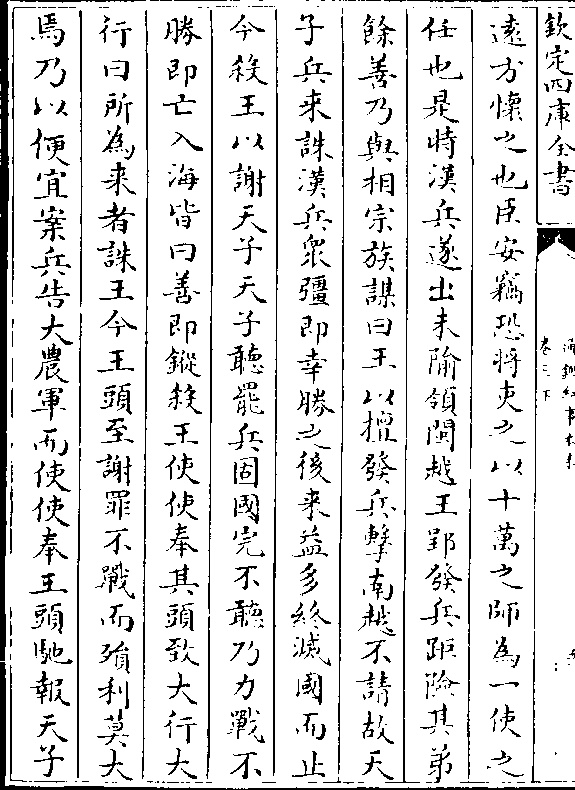 欽定四庫全書
通鑑紀事本末
卷三下
遠方懷之也臣安竊恐將吏之以十萬之師為一使之
任也是時漢兵遂出未隃領閩越王郢發兵距險其弟
餘善乃與相宗族謀曰王以擅發兵擊南越不請故天
子兵来誅漢兵衆彊即幸勝之後来益多終滅國而止
今殺王以謝天子天子聽罷兵固國完不聽乃力戰不
勝即亡入海皆曰善即鏦殺王使使奉其頭致大行大
行曰所為来者誅王今王頭至謝罪不戰而殞利莫大
焉乃以便宜案兵告大農軍而使使奉王頭馳報天子